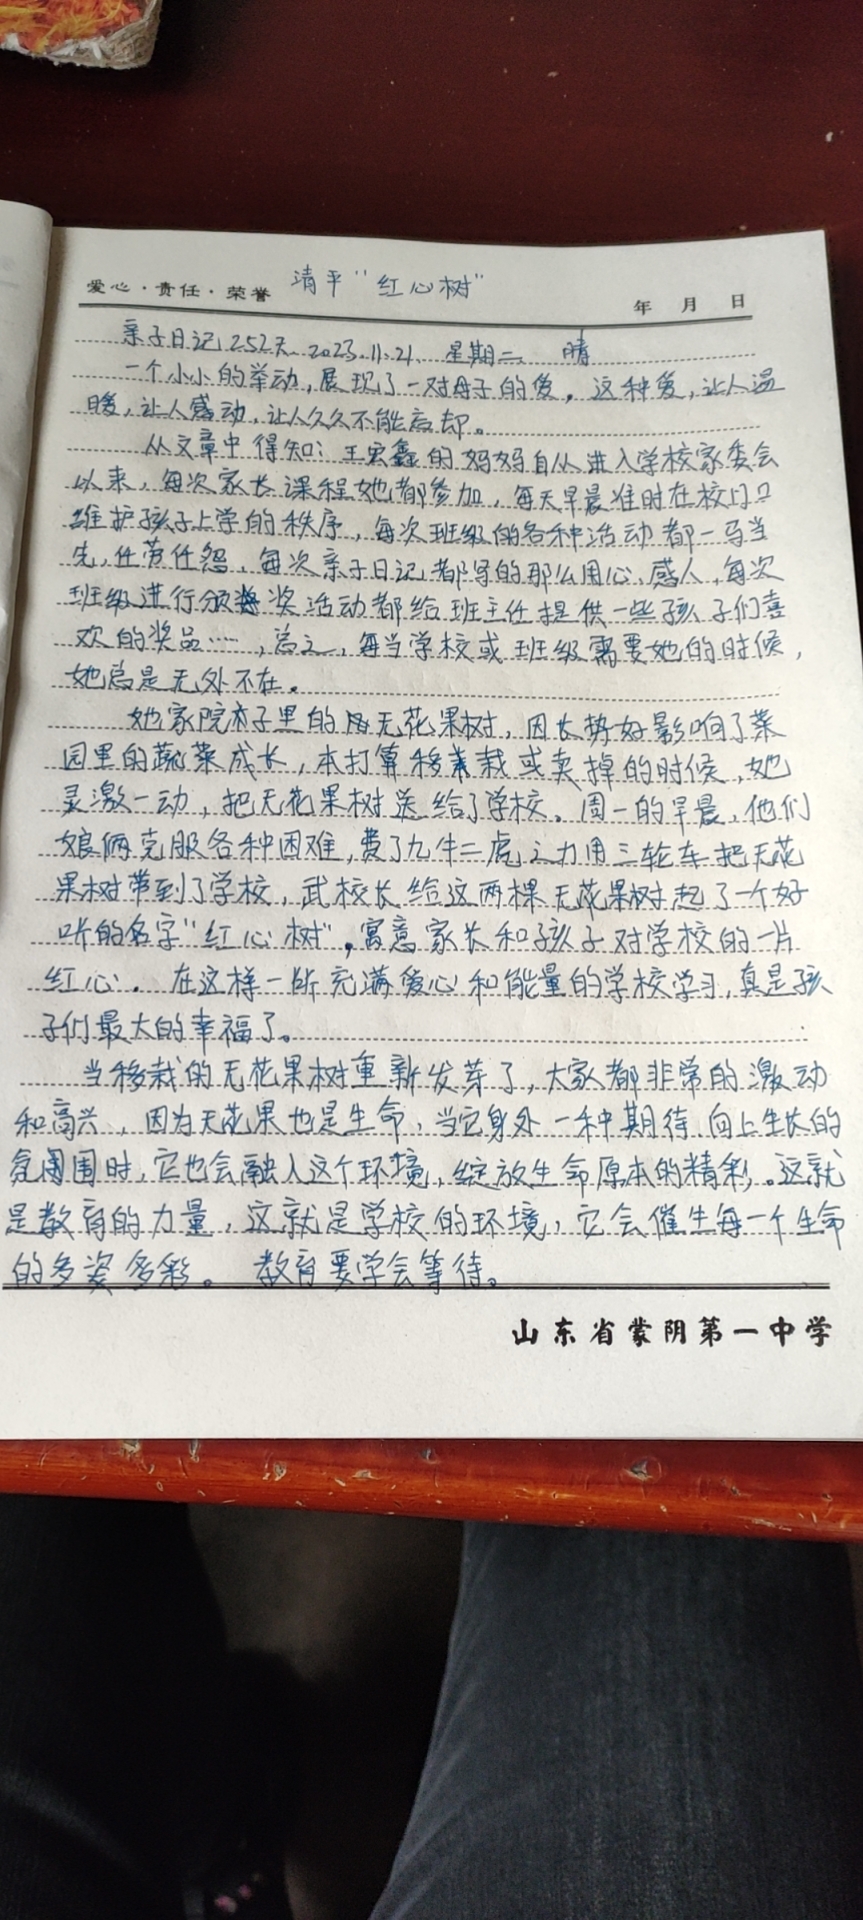 爱心·责任·荣誉 清平“红心树”
年 月 日
亲子日记252天 2023.11.21 星期二 晴
一个小小的举动，展现了一对母子的爱。这种爱，让人温
暖，让人感动，让人久久不能忘却。
从文章中得知：王宏鑫的妈妈自从进入学校家委会
以来，每次家长课程她都参加，每天早晨准时在校门口
维护孩子上学的秩序，每次班级的各种活动都一马当
先，任劳任怨，每次亲子日记都写的那么用心、感人，每次
班级进行颁奖活动都给班主任提供一些孩子们喜
欢的奖品……，总之，每当学校或班级需要她的时候，
她总是无处不在。
她家院子里的无花果树，因长势好影响了菜
园里的蔬菜成长，本打算移栽或卖掉的时候，她
灵激一动，把无花果树送给了学校。周一的早晨，他们
娘俩克服各种困难，费了九牛二虎之力用三轮车把无花
果树带到了学校，武校长给这两棵无花果树起了一个好
听的名字“红心树”，寓意家长和孩子对学校的一片
红心。在这样一所充满爱心和能量的学校学习，真是孩
子们最大的幸福了。
当移栽的无花果树重新发芽了，大家都非常的激动
和高兴，因为无花果也是生命，当它身处一种期待向上生长的
氛围时，它也会融入这个环境，绽放生命原本的精彩。这就
是教育的力量，这就是学校的环境，它会催生每一个生命
的多姿多彩。教育要学会等待。
山东省蒙阴第一中学